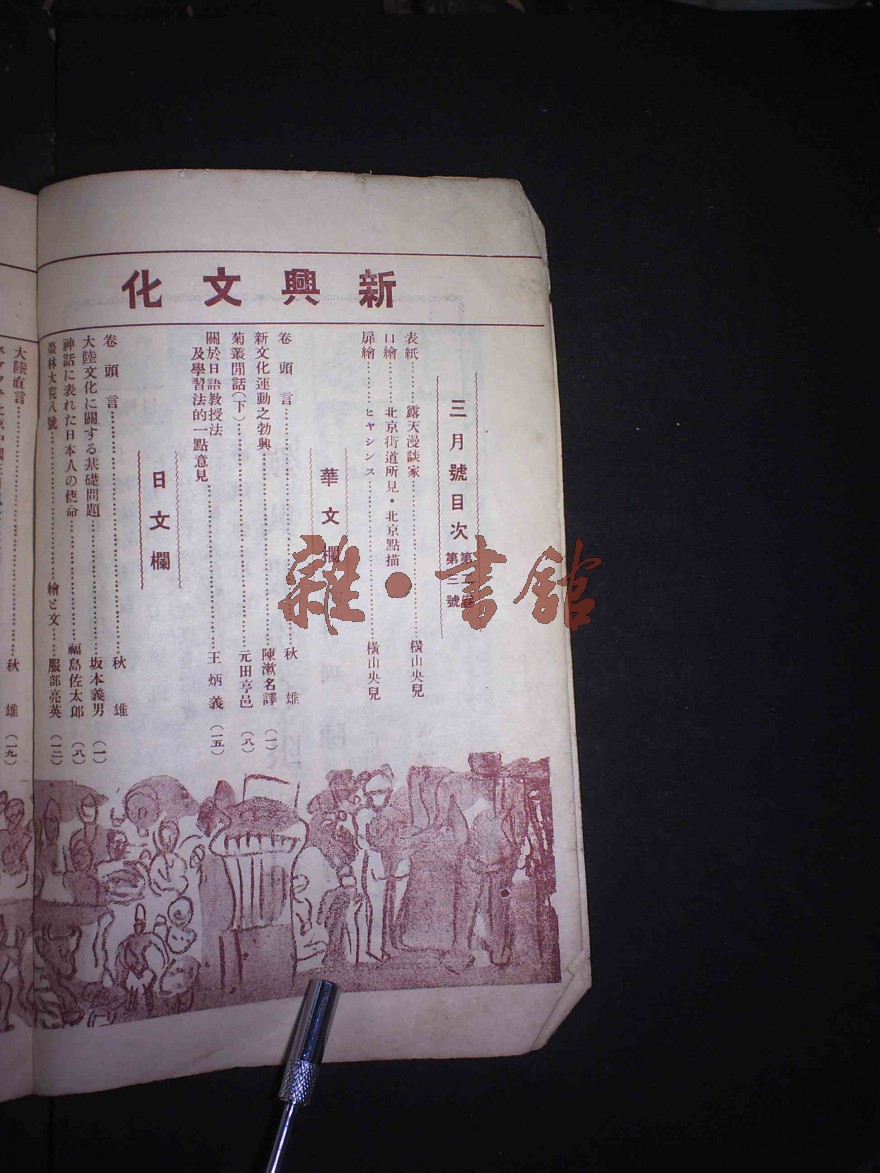 新興文化
三月號目次
第三號
表紙………露天漫談家…………横山央兒
口繪………北京街道所見・北京點描
扉繪………ヒヤシンス…………横山央兒
華文欄
卷頭言…………秋雄
新文化運動之勃興…………陳漱名譯(一)
菊叢閒話(下)…………元田亨邑(八)
關於日語教授法
及學習法的一點意見…………王炳義(一五)
日文欄
卷頭言…………秋雄
大陸文化に關する基礎問題…………坂本義男(一)
神話に表れた日本人の使命…………福島佐太郎(八)
棗林大院八號…………繪と文…服部亮英(一二)
大陸直言…………秋雄(一九)
雜・書館